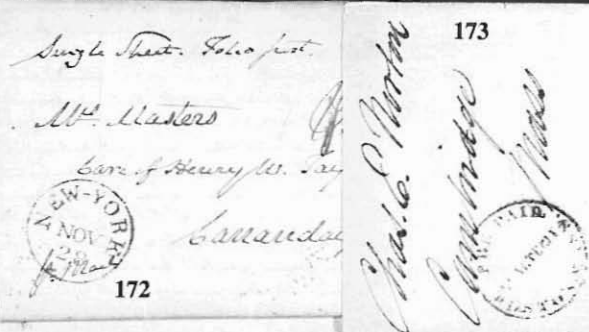 Single Sheet. Folio post.
Mrs. Masters
Care of Henry W. Tay
Canandai
NEW-YORK
NOV
172
173
Chas. E. Norton
Cambridge
Mass
PAID